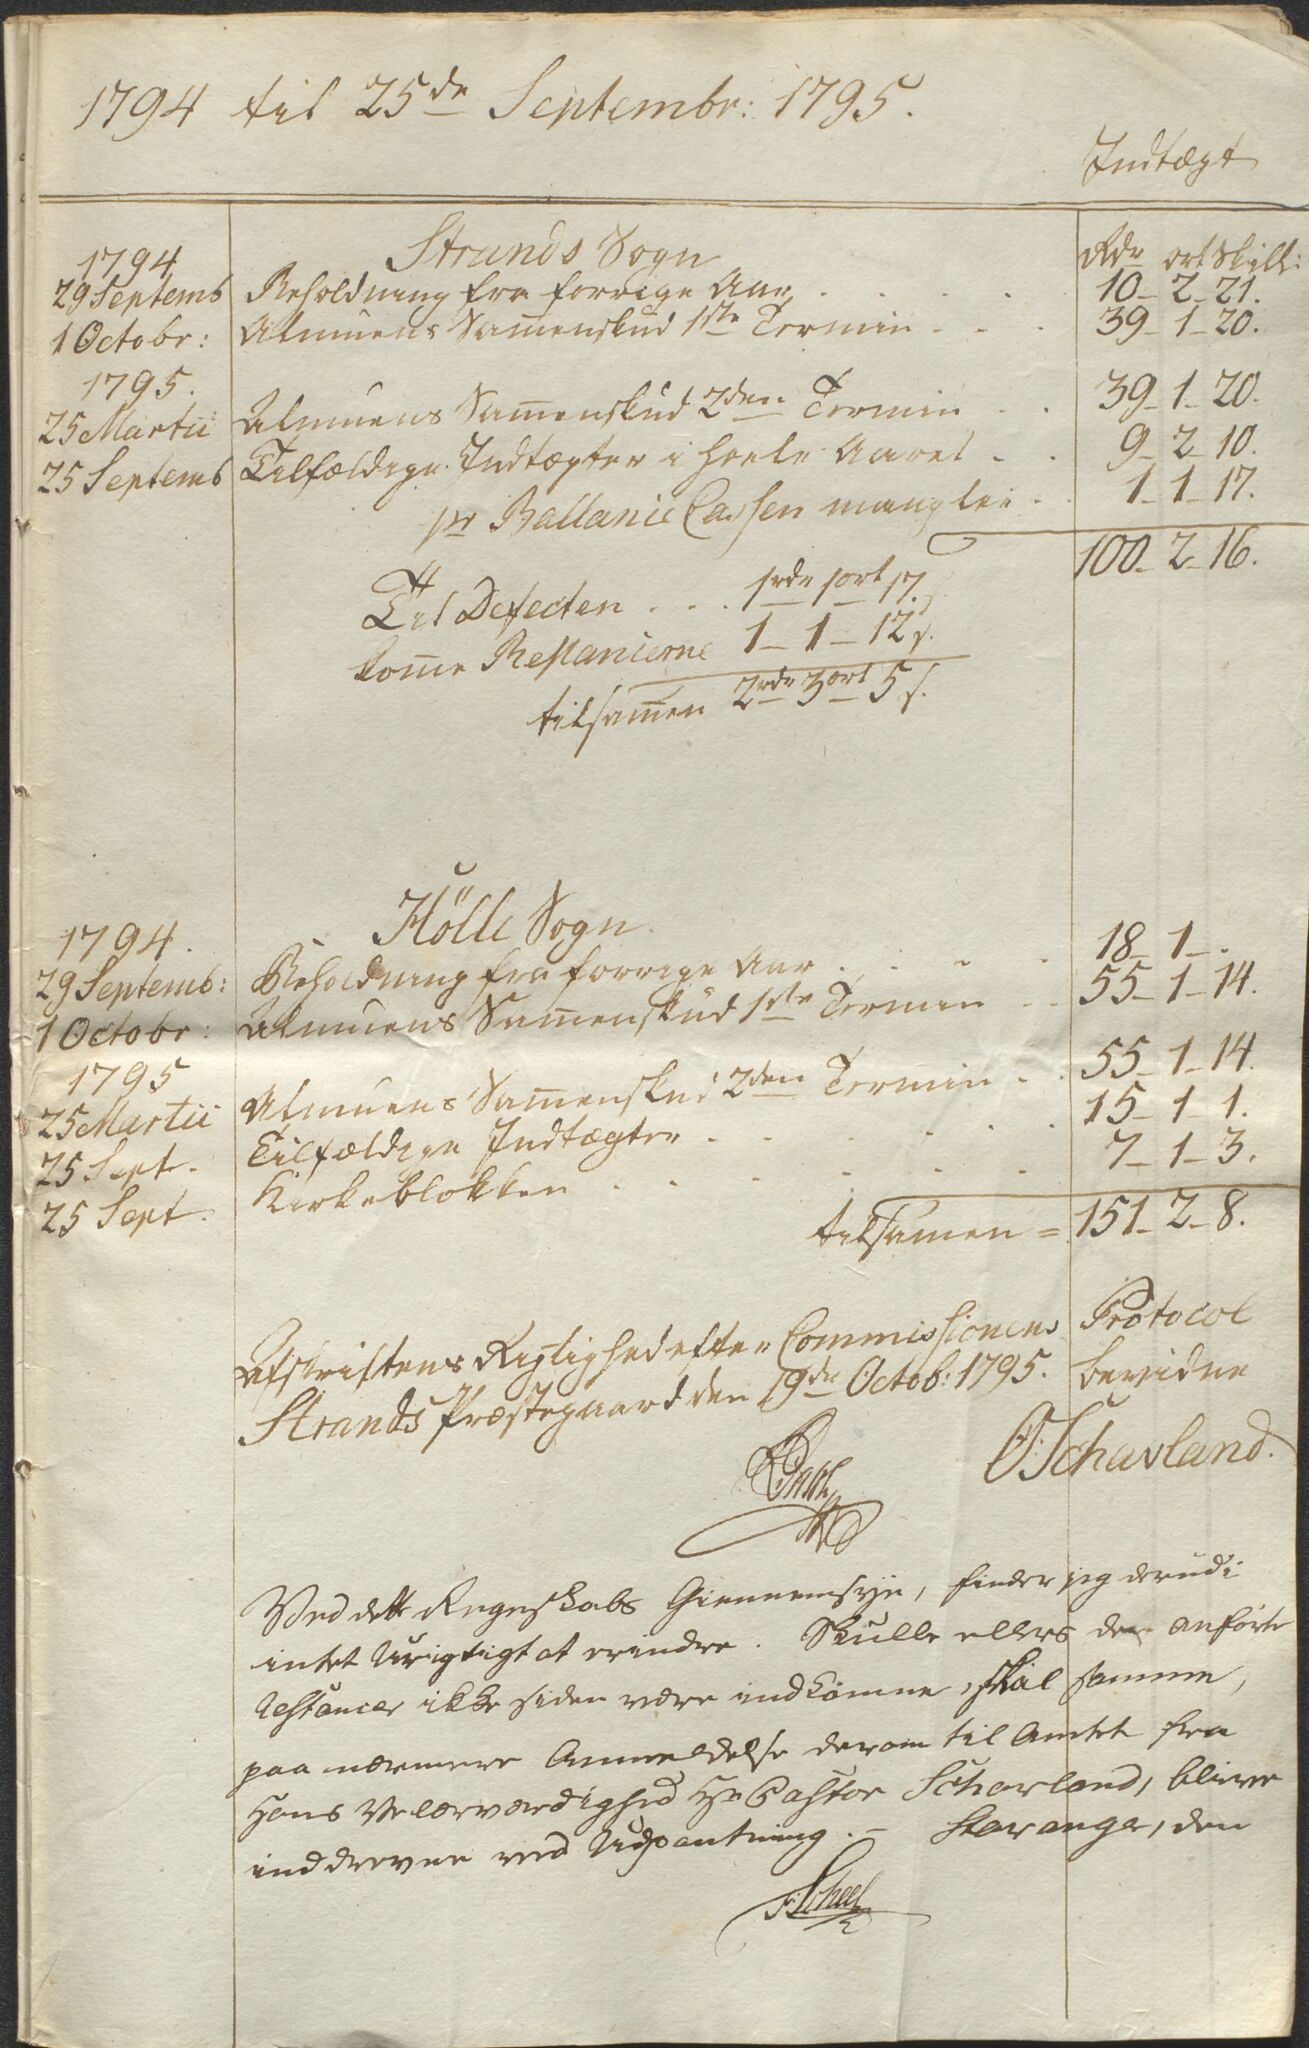 1794 til 25de Septembr: 1795.
Indtægt
Strands Sogn
Rdr ort Skill:
1794
29 Septemb Beholdning fra forrige Aar . . . . 10 - 2 - 21.
1 Octobr: Almuens Sammenskud 1ste Termin - - . 39 - 1 - 20.
1795.
25 Martii Almuens Sammenskud 2den Termin . . 39 - 1 - 20.
25 Septemb Tilfældige Indtægter i heele Aaret . . 9 - 2 - 10.
pr Ballance Cassen mangler . . 1 - 1 - 17.
100 - 2 - 16.
Til Defecten . . . 1rdr 1ort 17
komme Restancerne 1 - 1 - 12 s.
tilsammen 2rdr 3ort 5 s.
Hölle Sogn
1794.
29 Septemb: Beholdning fra forrige Aar . . . . 18 - 1 - .
1 Octobr: Almuens Sammenskud 1ste Termin - - 55 - 1 - 14.
1795
25 Martii Almuens Sammenskud 2den Termin . . 55 - 1 - 14.
25 Sept. Tilfældige Indtægter . . . . . . 15 - 1 - 1.
25 Sept. Kirkeblokken . . . . . . 7 - 1 - 3.
tilsamen = 151 - 2 - 8.
Afskriftens Rigtighed efter Commissionens Protocol
Strands Præstegaard den 19de Octob: 1795. bevidne
OSchavland.
Ved dette Regnskabs Giennemsyn, finder jeg derudi
intet Urigtigt at erindre. Skulle ellers de anförte
Restancer ikke siden være indkomne, skal samme,
paa nærmere Anmeldelse derom til Amtet fra
Hans Velærværdighed Hr Pastor Schavland, blive
inddrevne ved Udpantning. - Stavanger, den
F: Scheel